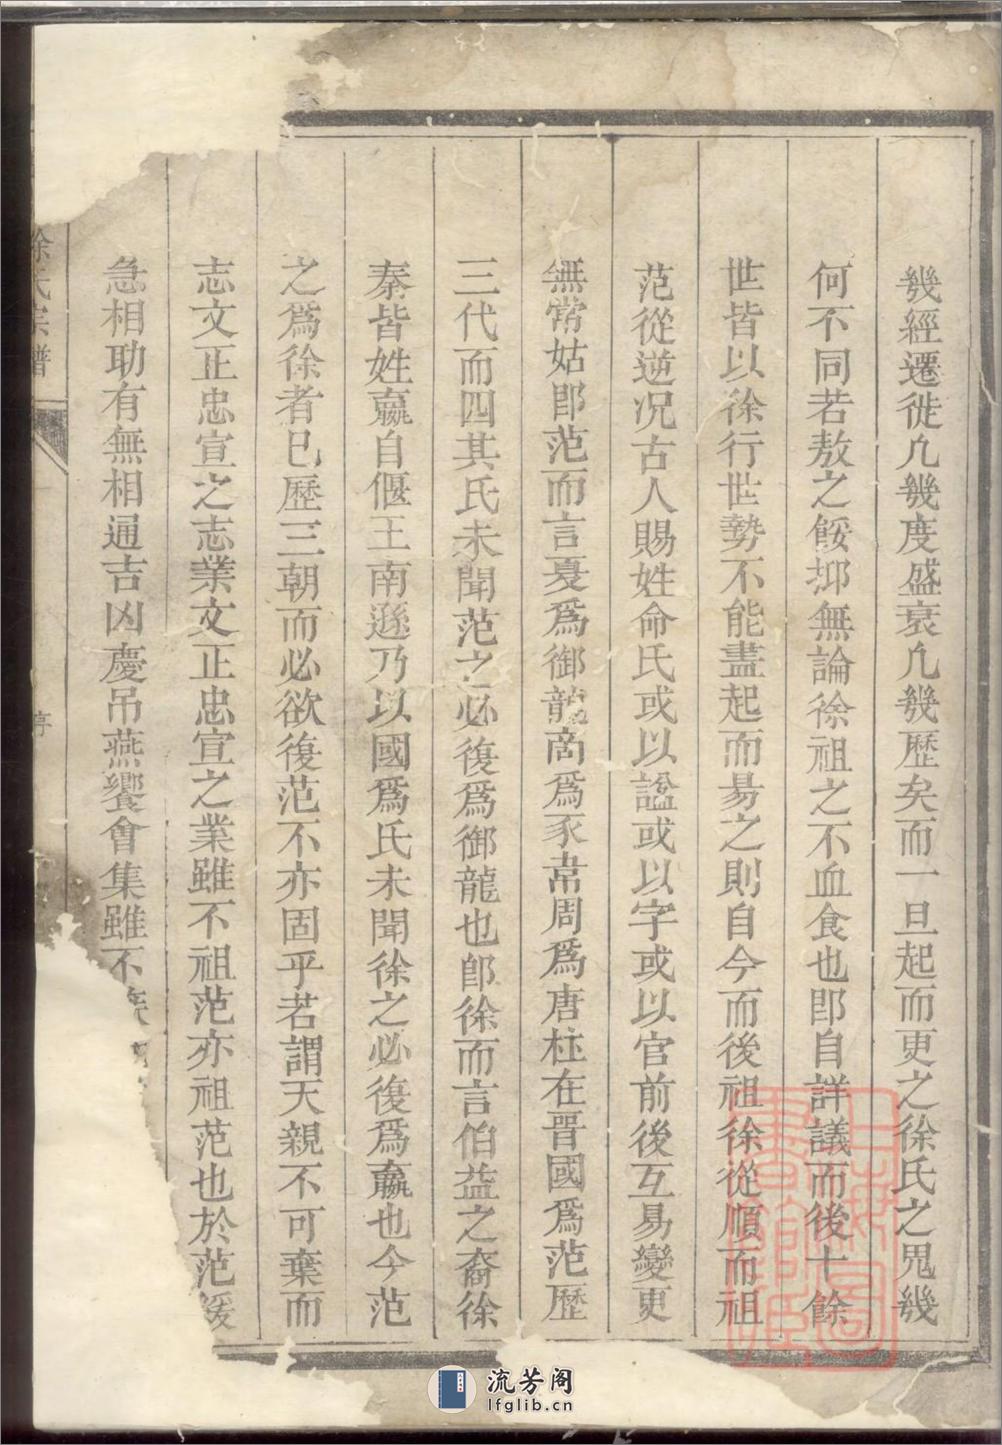 幾經遷徙凢幾度盛衰凢幾歷矣而一旦起而更之徐氏之鬼幾
何不同若敖之餒抑無論徐祖之不血食也卽自詳議而後十餘
世皆以徐行世勢不能盡起而易之則自今而後祖徐從順而祖
范從逆况古人賜姓命氏或以諡或以字或以官前後互易變更
無常姑卽范而言夏爲御龍商爲豕韋周爲唐杜在晋國爲范歷
三代而四其氏未聞范之必復爲御龍也卽徐而言伯益之裔徐
秦皆姓嬴自偃王南遜乃以國爲氏未聞徐之必復爲嬴也今范
之爲徐者已歷三朝而必欲復范不亦固乎若謂天親不可棄而
志文正忠宣之志業文正忠宣之業雖不祖范亦祖范也於范緩
急相助有無相通吉凶慶吊燕饗會集雖不族
徐氏宗譜
序
上海圖書館藏
流芳阁
lfglib.cn